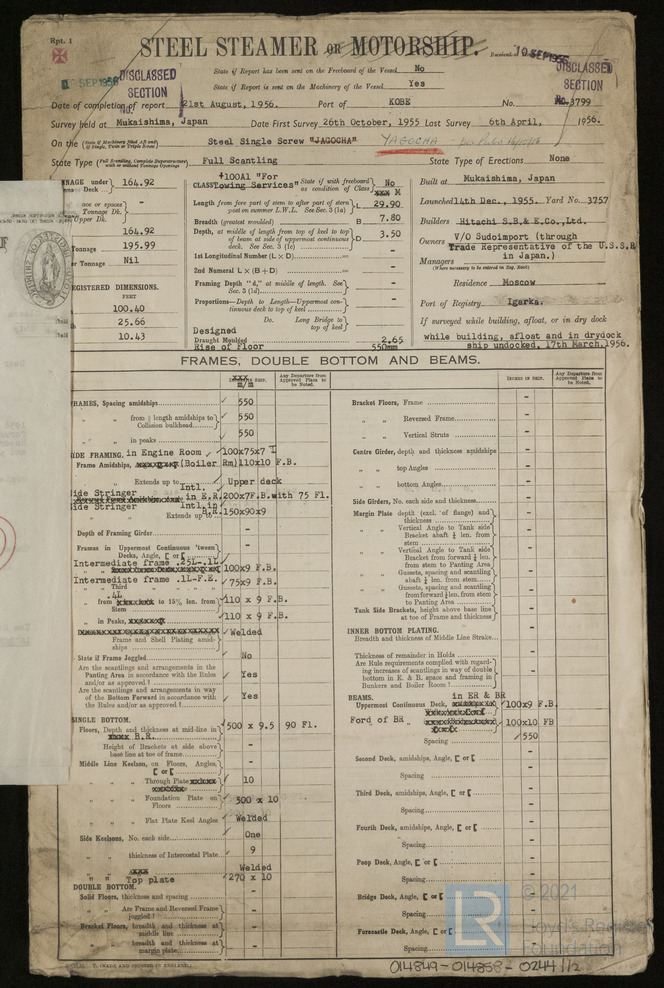 Rpt. 1
STEEL STEAMER OR MOTORSHIP.
Received 10 SEP 1956
10 SEP 1956
DISCLASSED SECTION
DISCLASSED SECTION
State if Report has been sent on the Freeboard of the Vessel No
State if Report is sent on the Machinery of the Vessel Yes
Date of completion of report 21st August, 1956. Port of KOBE No. 3799
Survey held at Mukaishima, Japan Date First Survey 26th October, 1955 Last Survey 6th April, 1956.
On the (State if Machinery fitted Aft and if Single, Twin or Triple Screw) Steel Single Screw "JAGOCHA" YAGOCHA
State Type (Full Scantling, Complete Superstructure with or without Tonnage Openings) Full Scantling State Type of Erections None
TONNAGE under Deck 164.92
-
164.92
Tonnage 195.99
Tonnage Nil
REGISTERED DIMENSIONS.
FEET
100.40
25.66
10.43
CLASS +100A1 "For Towing Services" State if with freeboard as condition of Class No
M
Length from fore part of stem to after part of stern post on summer L.W.L. See Sec. 3 (1a) L 29.90
Breadth (greatest moulded) B 7.80
Depth, at middle of length from top of keel to top of beam at side of uppermost continuous deck. See Sec. 3 (1c) D 3.50
1st Longitudinal Number (L × D) -
2nd Numeral L × (B + D) -
Framing Depth "d," at middle of length. See Sec. 3 (1d) -
Proportions—Depth to Length—Uppermost continuous deck to top of keel -
Do. Long Bridge to top of keel -
Designed
Draught Moulded 2.65
Rise of Floor 550mm
Built at Mukaishima, Japan
Launched 14th Dec., 1955. Yard No. 3757
Builders Hitachi S.B.& E.Co.,Ltd.
Owners V/O Sudoimport (through Trade Representative of the U.S.S.R in Japan.)
Managers
(Where necessary to be entered in Reg. Book)
Residence Moscow
Port of Registry Igarka.
If surveyed while building, afloat, or in dry dock
while building, afloat and in drydock
ship undocked, 17th March, 1956.
FRAMES, DOUBLE BOTTOM AND BEAMS.
m/m
Any Departure from Approved Plans to be Noted.
FRAMES, Spacing amidships 550
" " from ⅗ length amidships to Collision bulkhead 550
" " in peaks 550
SIDE FRAMING. in Engine Room 100x75x7 I
Frame Amidships, (Boiler Rm) 110x10 F.B.
" " Extends up to Upper deck
Side Stringer Intl. in E.R. 200x7F.B. with 75 Fl.
Side Stringer Intl. in B.R. 150x90x9
" " Extends up to
Depth of Framing Girder -
Frames in Uppermost Continuous 'tween Decks, Angle, [ or [ -
Intermediate frame .25L-.1L 100x9 F.B.
Intermediate frame .1L-F.E. 75x9 F.B.
" Third
" from .4L to 15% len. from Stem 110 x 9 F.B.
" in Peaks, 110 x 9 F.B.
Welded
Frame and Shell Plating amidships
State if Frame Joggled No
Are the scantlings and arrangements in the Panting Area in accordance with the Rules and/or as approved? Yes
Are the scantlings and arrangements in way of the Bottom Forward in accordance with the Rules and/or as approved? Yes
SINGLE BOTTOM.
Floors, Depth and thickness at mid-line in B.R. 500 x 9.5 90 Fl.
Height of Brackets at side above base line at toe of frame -
Middle Line Keelson, on Floors, Angles, [ or [ -
" " Through Plate 10
" " Foundation Plate on Floors 500 x 10
" " Flat Plate Keel Angles Welded
Side Keelsons, No. each side One
" " thickness of Intercostal Plate 9
Welded
" " Top plate 270 x 10
DOUBLE BOTTOM.
Solid Floors, thickness and spacing -
" " Are Frame and Reversed Frame joggled? -
Bracket Floors, breadth and thickness at middle line -
" " breadth and thickness at margin plate -
INCHES IN SHIP.
Any Departure from Approved Plans to be Noted.
Bracket Floors, Frame -
" " Reversed Frame -
" " Vertical Struts -
Centre Girder, depth and thickness amidships -
" " top Angles -
" " bottom Angles -
Side Girders, No. each side and thickness -
Margin Plate depth (excl. of flange) and thickness -
" " Vertical Angle to Tank side Bracket abaft ¼ len. from stem -
" " Vertical Angle to Tank side Bracket from forward ¼ len. from stem to Panting Area -
" " Gussets, spacing and scantling abaft ¼ len. from stem -
" " Gussets, spacing and scantling from forward ¼ len. from stem to Panting Area -
Tank Side Brackets, height above base line at toe of Frame and thickness -
INNER BOTTOM PLATING.
Breadth and thickness of Middle Line Strake -
Thickness of remainder in Holds -
Are Rule requirements complied with regarding increases of scantlings in way of double bottom in E. & B. space and framing in Bunkers and Boiler Room? -
BEAMS. in ER & BR
Uppermost Continuous Deck, 100x9 F.B.
Ford of BR " 100x10 FB
Spacing 550
Second Deck, amidships, Angle, [ or [ -
Spacing -
Third Deck, amidships, Angle, [ or [ -
Spacing -
Fourth Deck, amidships, Angle, [ or [ -
Spacing -
Poop Deck, Angle, [ or [ -
Spacing -
Bridge Deck, Angle, [ or [ -
Spacing -
Forecastle Deck, Angle, [ or [ -
Spacing -
LR
© 2021
Lloyd's Register
Foundation
014849-014858-0244 1/2